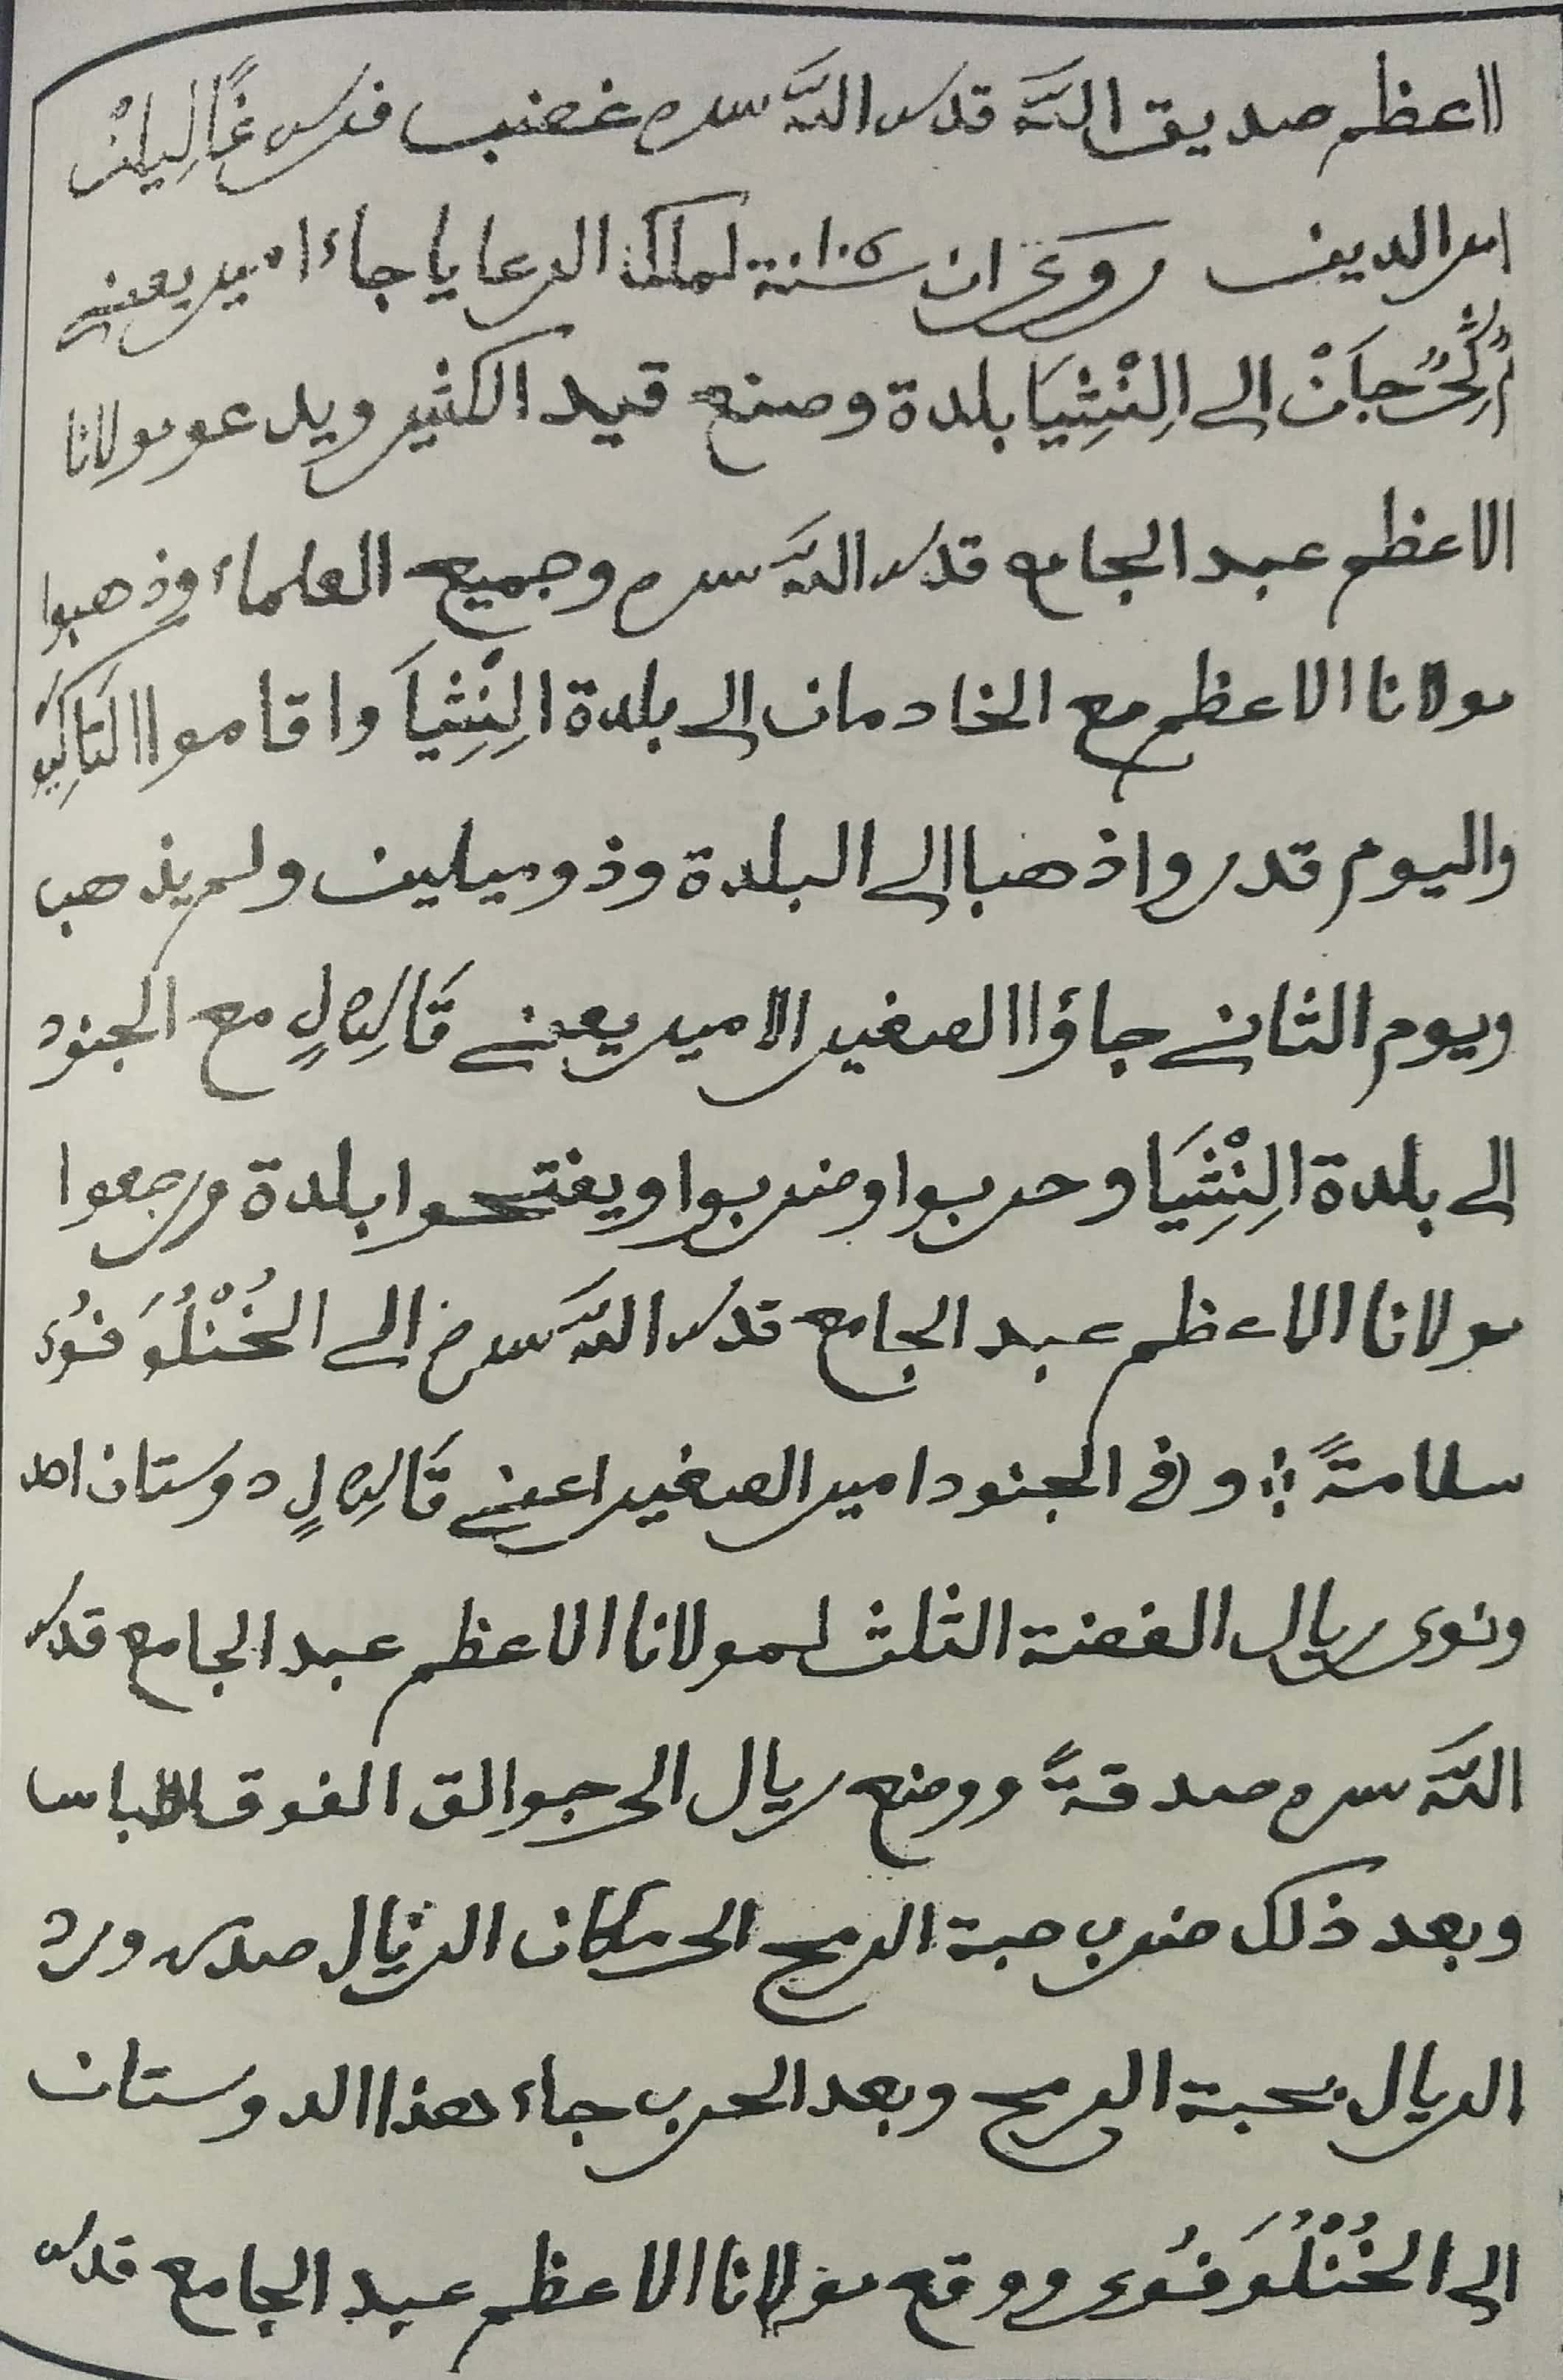 الاعظم صديق الله قدس الله سره غضب فدس غًالِيلنْ
امر الدين روى ان سنة لملك الرعايا جاء امير يعنے
حجانْ الى الِنْثِيَا بلدة وصنع قيد الكثير ويدعو مولانا
الاعظم عبد الجامع قدس الله سره وجميع العلماء وذهبوا
مولانا الاعظم مع الخادمان الى بلدة الِنْثِيَا واقاموا
واليوم قدروا ذهبا الى البلدة وذو ميلين ولم يذهب
ويوم الثانے جاؤا الصغير الامير يعنے قَالِرلٍ مع الجنود
الى بلدة الِنْثِيَا وحربوا وضربوا ويفتحوا بلدة ورجعوا
مولانا الاعظم عبد الجامع قدس الله سره الى الخُنْلُوَفُوُء
سلامةً ؛ و فى الجنود امير الصغير اعنے قَالِرلٍ دوستان احد
ونوى ريال الفضة الثلث لمولانا الاعظم عبد الجامع قدس
الله سره صدقةً ووضع ريال الى جوالق الفوق لباسا
وبعد ذلك ضرب حبة الرمح الى مكان الريال صدر ورد
الريال بحبة الرمح وبعد الحرب جاء هذا الدوستان
الى الخُنْلُوَفُوى ووقع مولانا الاعظم عبد الجامع قدس